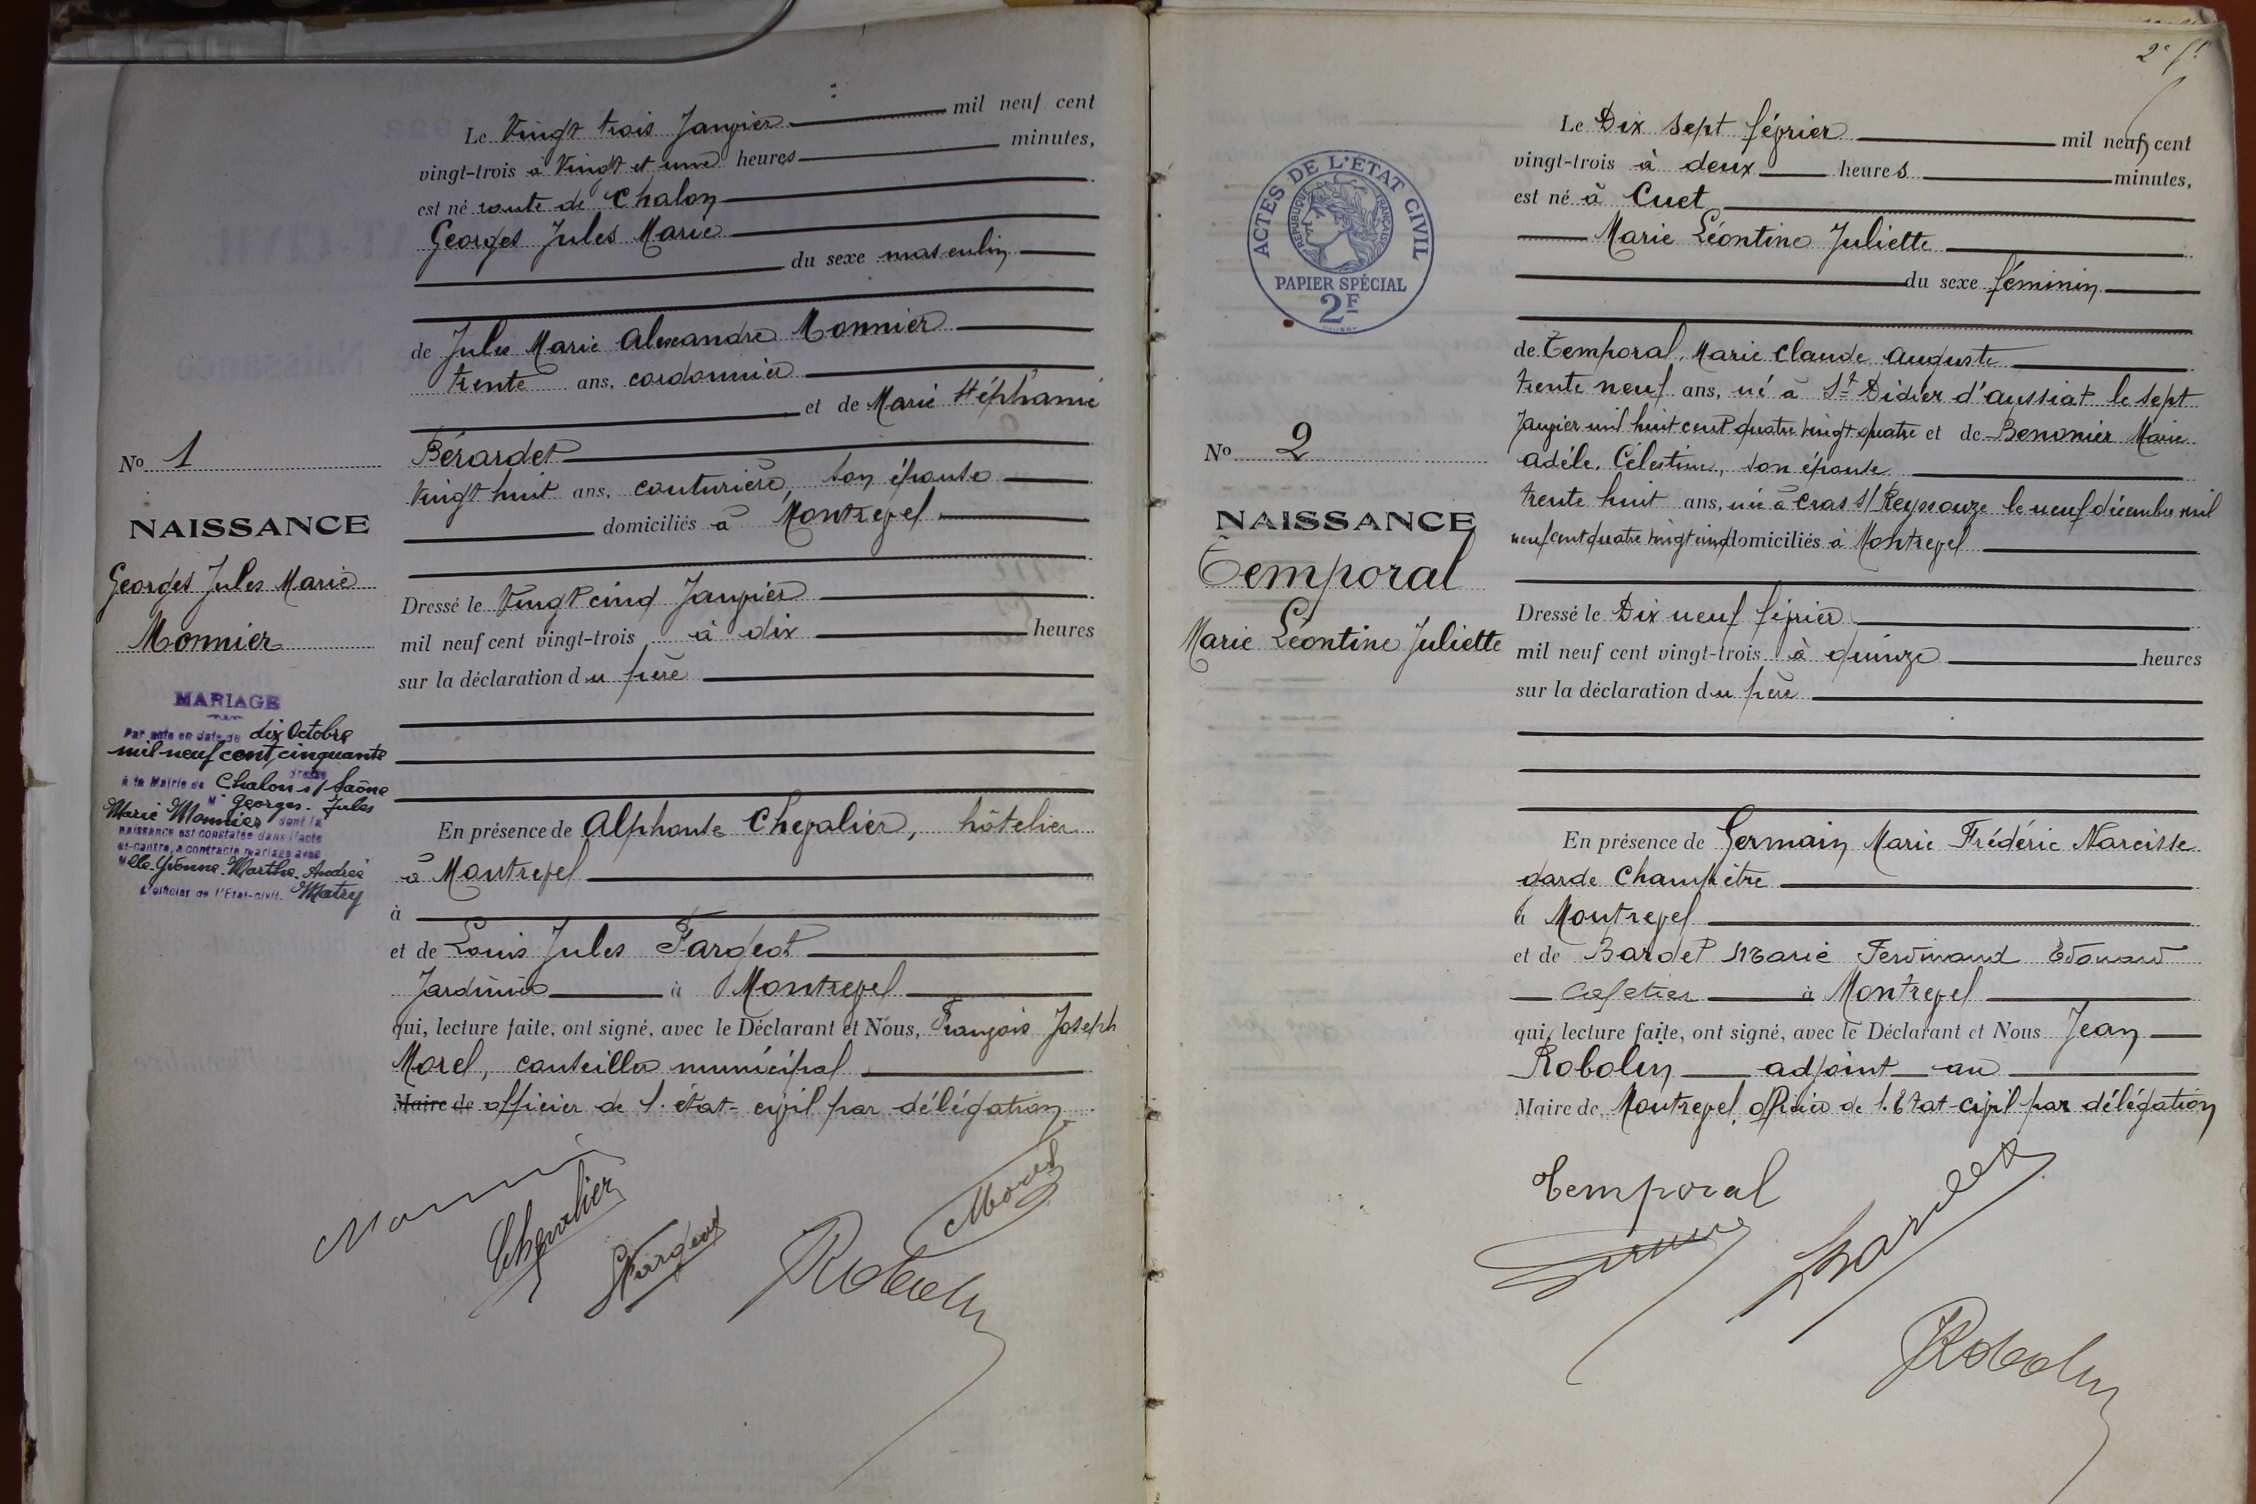 Le Vingt trois Janvier mil neuf cent
vingt-trois à Vingt et une heures minutes,
est né route de Chalon
Georges Jules Marie
du sexe masculin
de Jules Marie Alexandre Monnier
trente ans, cordonnier
et de Marie Stéphanie
Bérardet
Vingt huit ans, couturière, son épouse
domiciliés à Montrevel
No 1
NAISSANCE
Georges Jules Marie
Monnier
Dressé le Vingt cinq Janvier
mil neuf cent vingt-trois à dix heures
sur la déclaration du père
MARIAGE
Par acte en date du dix Octobre
mil neuf cent cinquante
dressé
à la Mairie de Chalon s/ Saône
Mr Georges Jules
Marie Monnier dont la
naissance est constatée dans l'acte
ci-contre, a contracté mariage avec
Melle Yvonne Marthe Andrée
L'officier de l'Etat-civil. Matry
En présence de Alphonse Chevalier, hôtelier
à Montrevel
à
et de Louis Jules Fargeot
Jardinier à Montrevel
qui, lecture faite, ont signé, avec le Déclarant et Nous, François Joseph
Morel, conseiller municipal
Maire de officier de l'état-civil par délégation
Chevalier
Fargeot
Morel
Robolin
2e ft
Le Dix sept février mil neuf cent
vingt-trois à deux heures minutes,
est né à Cuet
Marie Léontine Juliette
du sexe féminin
de Temporal, Marie Claude Auguste
trente neuf ans, né à St Didier d'Aussiat le sept
Janvier mil huit cent quatre vingt quatre et de Benonier Marie
Adéle, Célestine, son épouse
trente huit ans, née à Cras s/ Reyssouze le neuf décembre mil
neuf cent quatre vingt cinq domiciliés à Montrevel
ACTES DE L'ÉTAT CIVIL
RÉPUBLIQUE FRANÇAISE
PAPIER SPÉCIAL
2F
No 2
NAISSANCE
Temporal
Marie Léontine Juliette
Dressé le Dix neuf février
mil neuf cent vingt-trois à quinze heures
sur la déclaration du père
En présence de Germain Marie Frédéric Narcisse
garde Champêtre
à Montrevel
et de Bardet Marie Ferdinand Edouard
Cafetier à Montrevel
qui, lecture faite, ont signé, avec le Déclarant et Nous Jean
Robolin adjoint au
Maire de Montrevel, officier de l'Etat-civil par délégation
Temporal
Bardet
Robolin